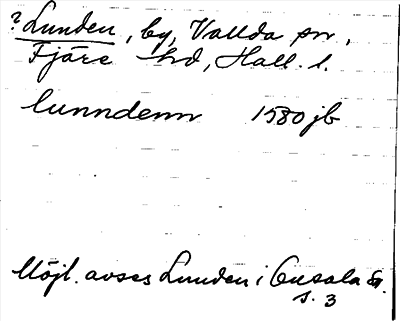 ? Lunden, by, Vallda sn,
Fjäre hd, Hall. l.
lunndenn 1580 jb
Möjl. avses Lunden i Onsala sn.
s. 3